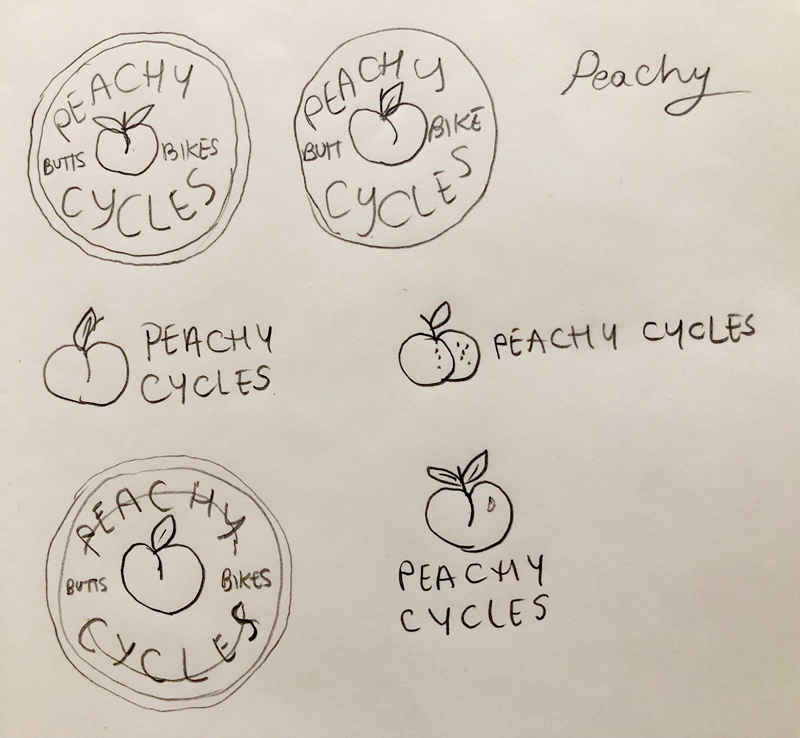 PEACHY
BUTTS BIKES
CYCLES
PEACHY
BUTT BIKE
CYCLES
Peachy
PEACHY
CYCLES
PEACHY CYCLES
PEACHY
BUTTS BIKES
CYCLES
PEACHY
CYCLES